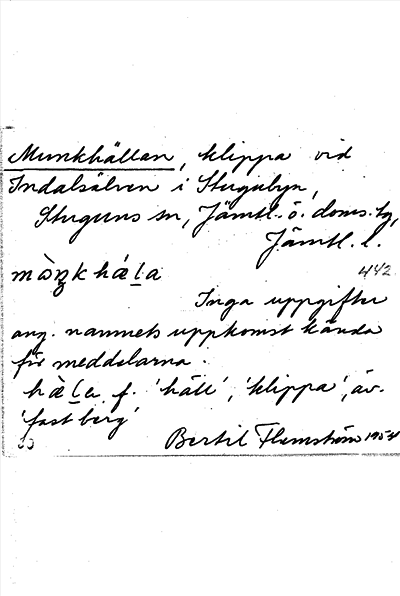 Munkhällan, klippa vid
Indalsälven i Stugubyn,
Stuguns sn, Jämtl. ö. doms. tg,
Jämtl. l.
442
Inga uppgifter
ang. namnets uppkomst kända
för meddelarna.
f. 'häll', 'klippa', äv.
'fast berg'
Bertil Flemström 1954